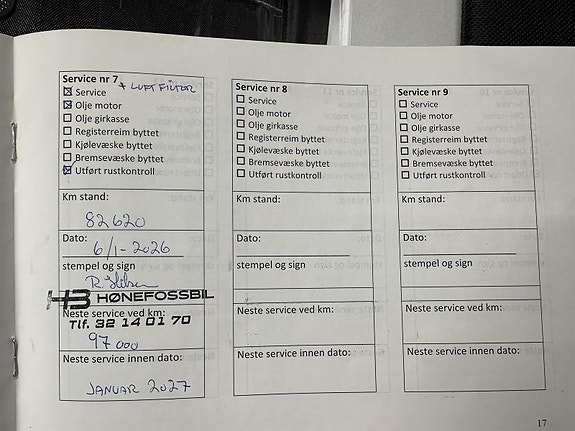 Service nr 7 + LUFTFILTER
☒ Service
☒ Olje motor
☐ Olje girkasse
☐ Registerreim byttet
☐ Kjølevæske byttet
☐ Bremsevæske byttet
☒ Utført rustkontroll
Km stand:
82620
Dato:
6/1-2026
stempel og sign
R.
HB HØNEFOSSBIL
Neste service ved km:
Tlf. 32 14 01 70
97000
Neste service innen dato:
JANUAR 2027
Service nr 8
☐ Service
☐ Olje motor
☐ Olje girkasse
☐ Registerreim byttet
☐ Kjølevæske byttet
☐ Bremsevæske byttet
☐ Utført rustkontroll
Km stand:
Dato:
stempel og sign
Neste service ved km:
Neste service innen dato:
Service nr 9
☐ Service
☐ Olje motor
☐ Olje girkasse
☐ Registerreim byttet
☐ Kjølevæske byttet
☐ Bremsevæske byttet
☐ Utført rustkontroll
Km stand:
Dato:
stempel og sign
Neste service ved km:
Neste service innen dato:
17